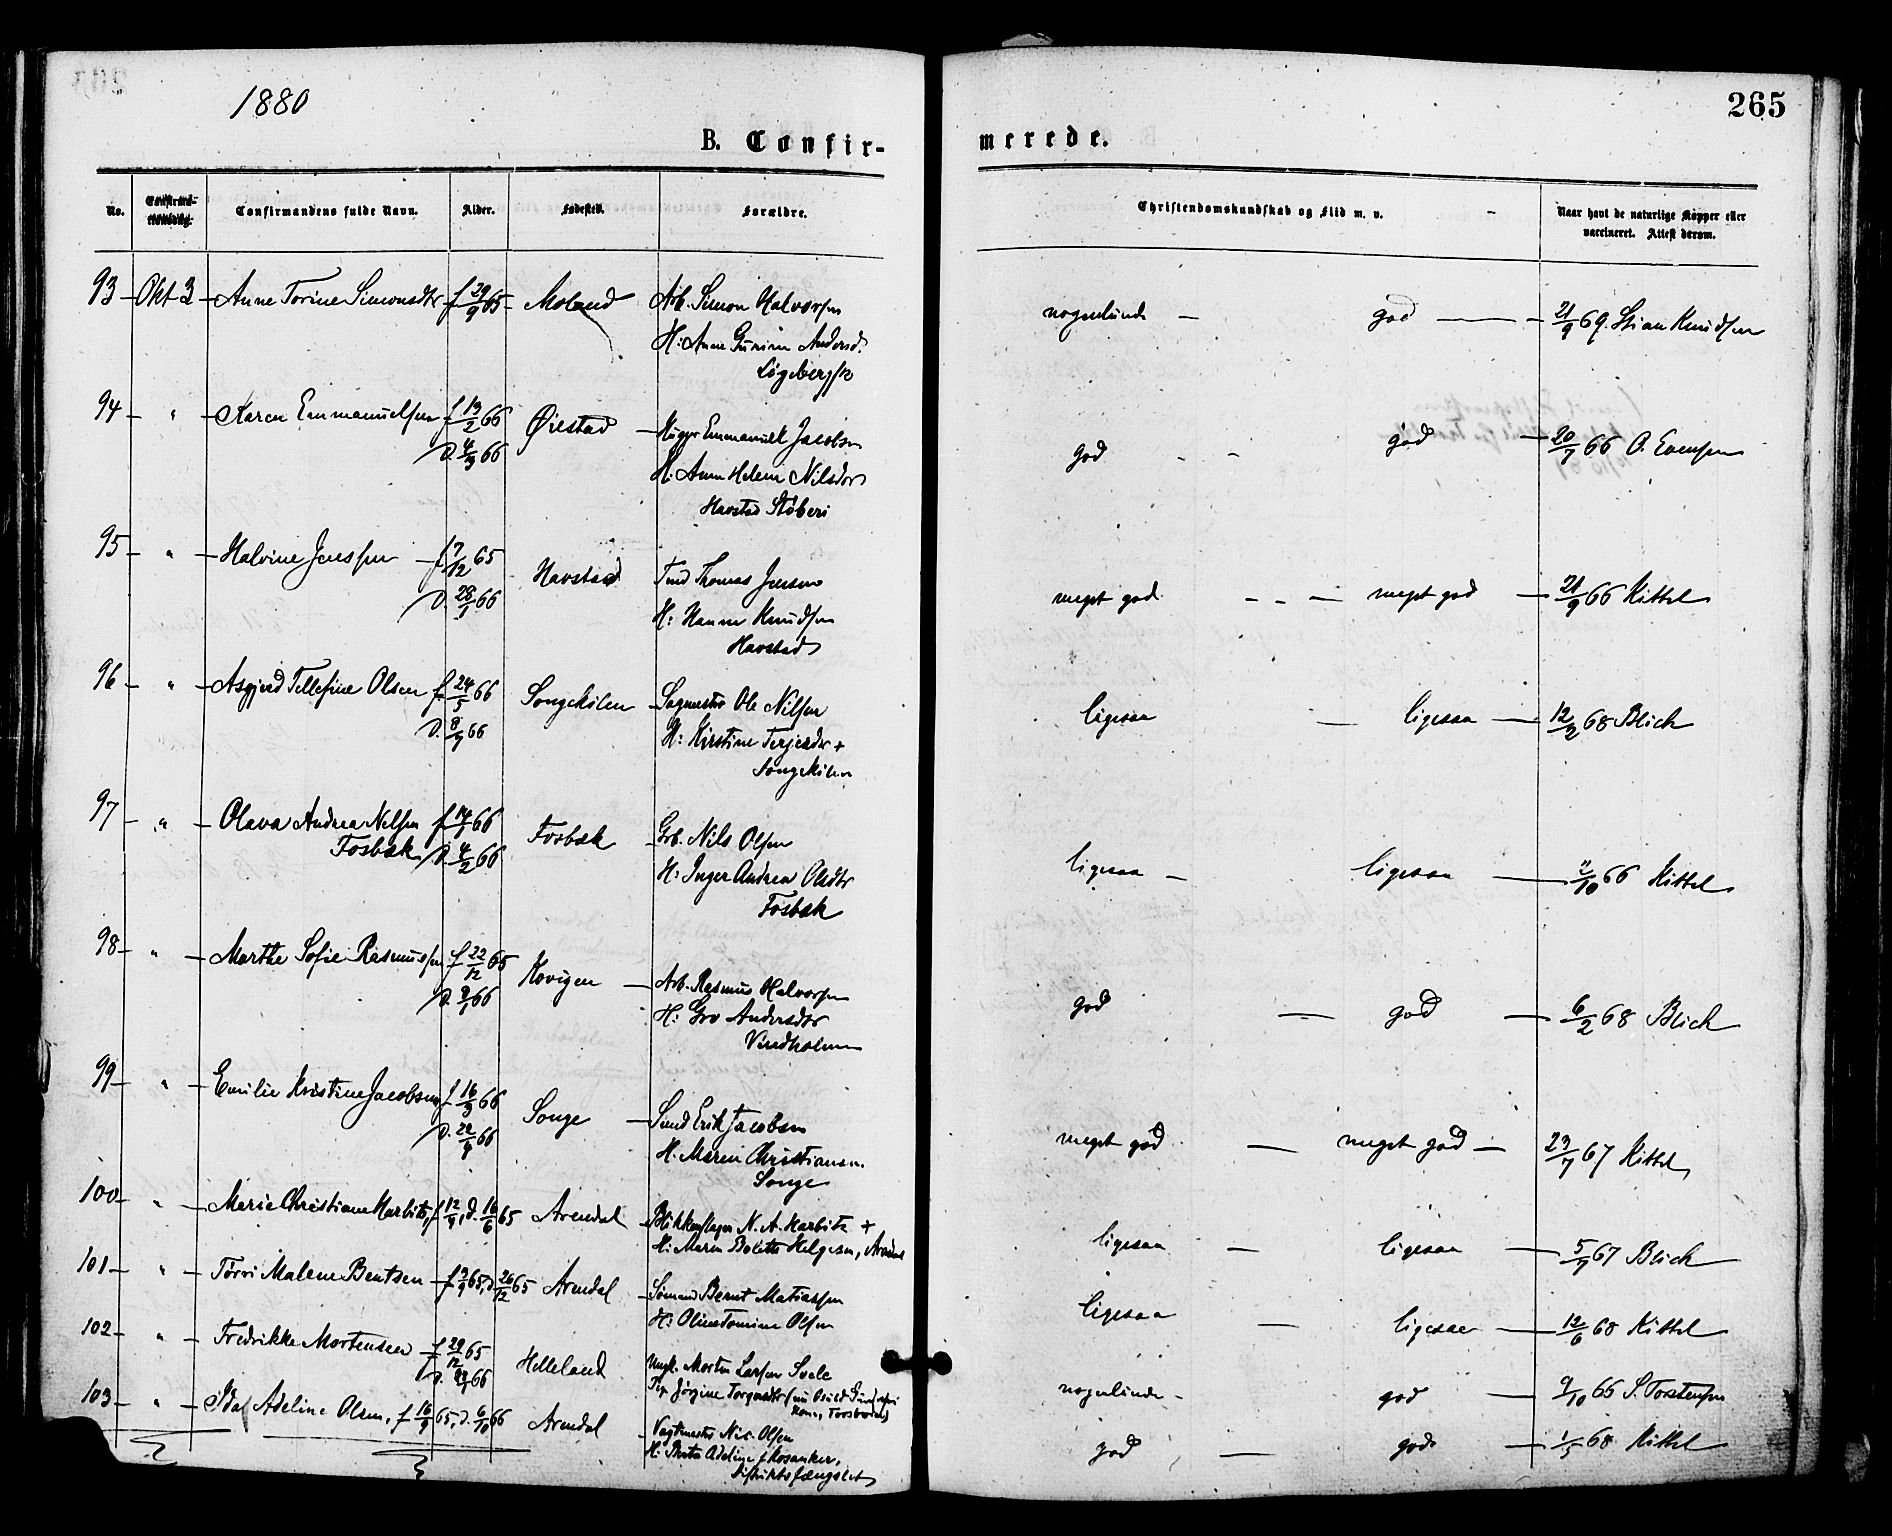 1880
265
B. Confir-
merede.
No.
Confirma-
tionsdag.
Confirmandens fulde Navn.
Alder.
Fødested.
Forældre.
Christendomskundskab og Flid m. v.
Naar havt de naturlige Kopper eller
vaccineret. Attest derom.
93 Okt 3 Anne Torine Simonsdtr f 29/9 65 Moland Arb. Simon Halvorsen
H: Anne Gurine Andersd.
nogenlunde god 21/9 69. Stian Knudsen
94 " Karen Emmanuelsen f 13/2 66 Øiestad Emmanuel Jacobsen
H: Anne Helene Nilsdtr
Havstad
god god 20/7 66 O. Evensen
95 " Halvine Jenssen f 7/12 65 Havstad Tmd Thomas Jensen
D. 28/1 66 H: Hanne Knudsen
Havstad
meget god meget god 21/9 66 Kittel
96 " Asgjerd Tellefine Olsen f 24/5 66 Songekilen Ole Nilsen
D. 8/7 66 H: Kirstine Terjesdtr +
Songekilen
ligesaa ligesaa 12/2 68 Blich
97 " Olava Andrea Nilsen Fosbæk Grb. Nils Olsen
Fosbæk D. 4/2 66 H: Inger Andrea Olsdtr
Fosbæk
ligesaa ligesaa 66 Kittel
98 " Marthe Sofie Rasmussen f 22/12 65 Arb. Rasmus Halvorsen
H: Gro Andersdtr
Vindholmen
god god 6/2 68 Blich
99 " Emilie Kristine Jacobsen f 16/3 66 Songe Erik Jacobsen
H. Maren Christiansen
Songe
meget god meget god 23/7 67 Kittel
100 " Marie Christiane Harbitz, D. 16/6 65 Arendal Blikkenslager N. A. Harbitz +
H: Maren Bolette Helgesen, Arendal
ligesaa ligesaa 5/7 67 Blich
101 " Torvi Malene Bentsen Arendal Sømand Bernt Matiassen
H: Oline Tomine Olsen
ligesaa ligesaa 12/6 68 Kittel
102 " Fredrikke Mortensen f 29/12 65 Helleland Ungk. Morten Larsen
Pig. Jørgine
nogenlunde god 9/10 66 S. Torstensen
103 " Ida Adeline Olsen, f 16/9 65, D. 6/10 66 Arendal Vagtmester Nils Olsen
Distriktsfængslet
god god 68 Kittel